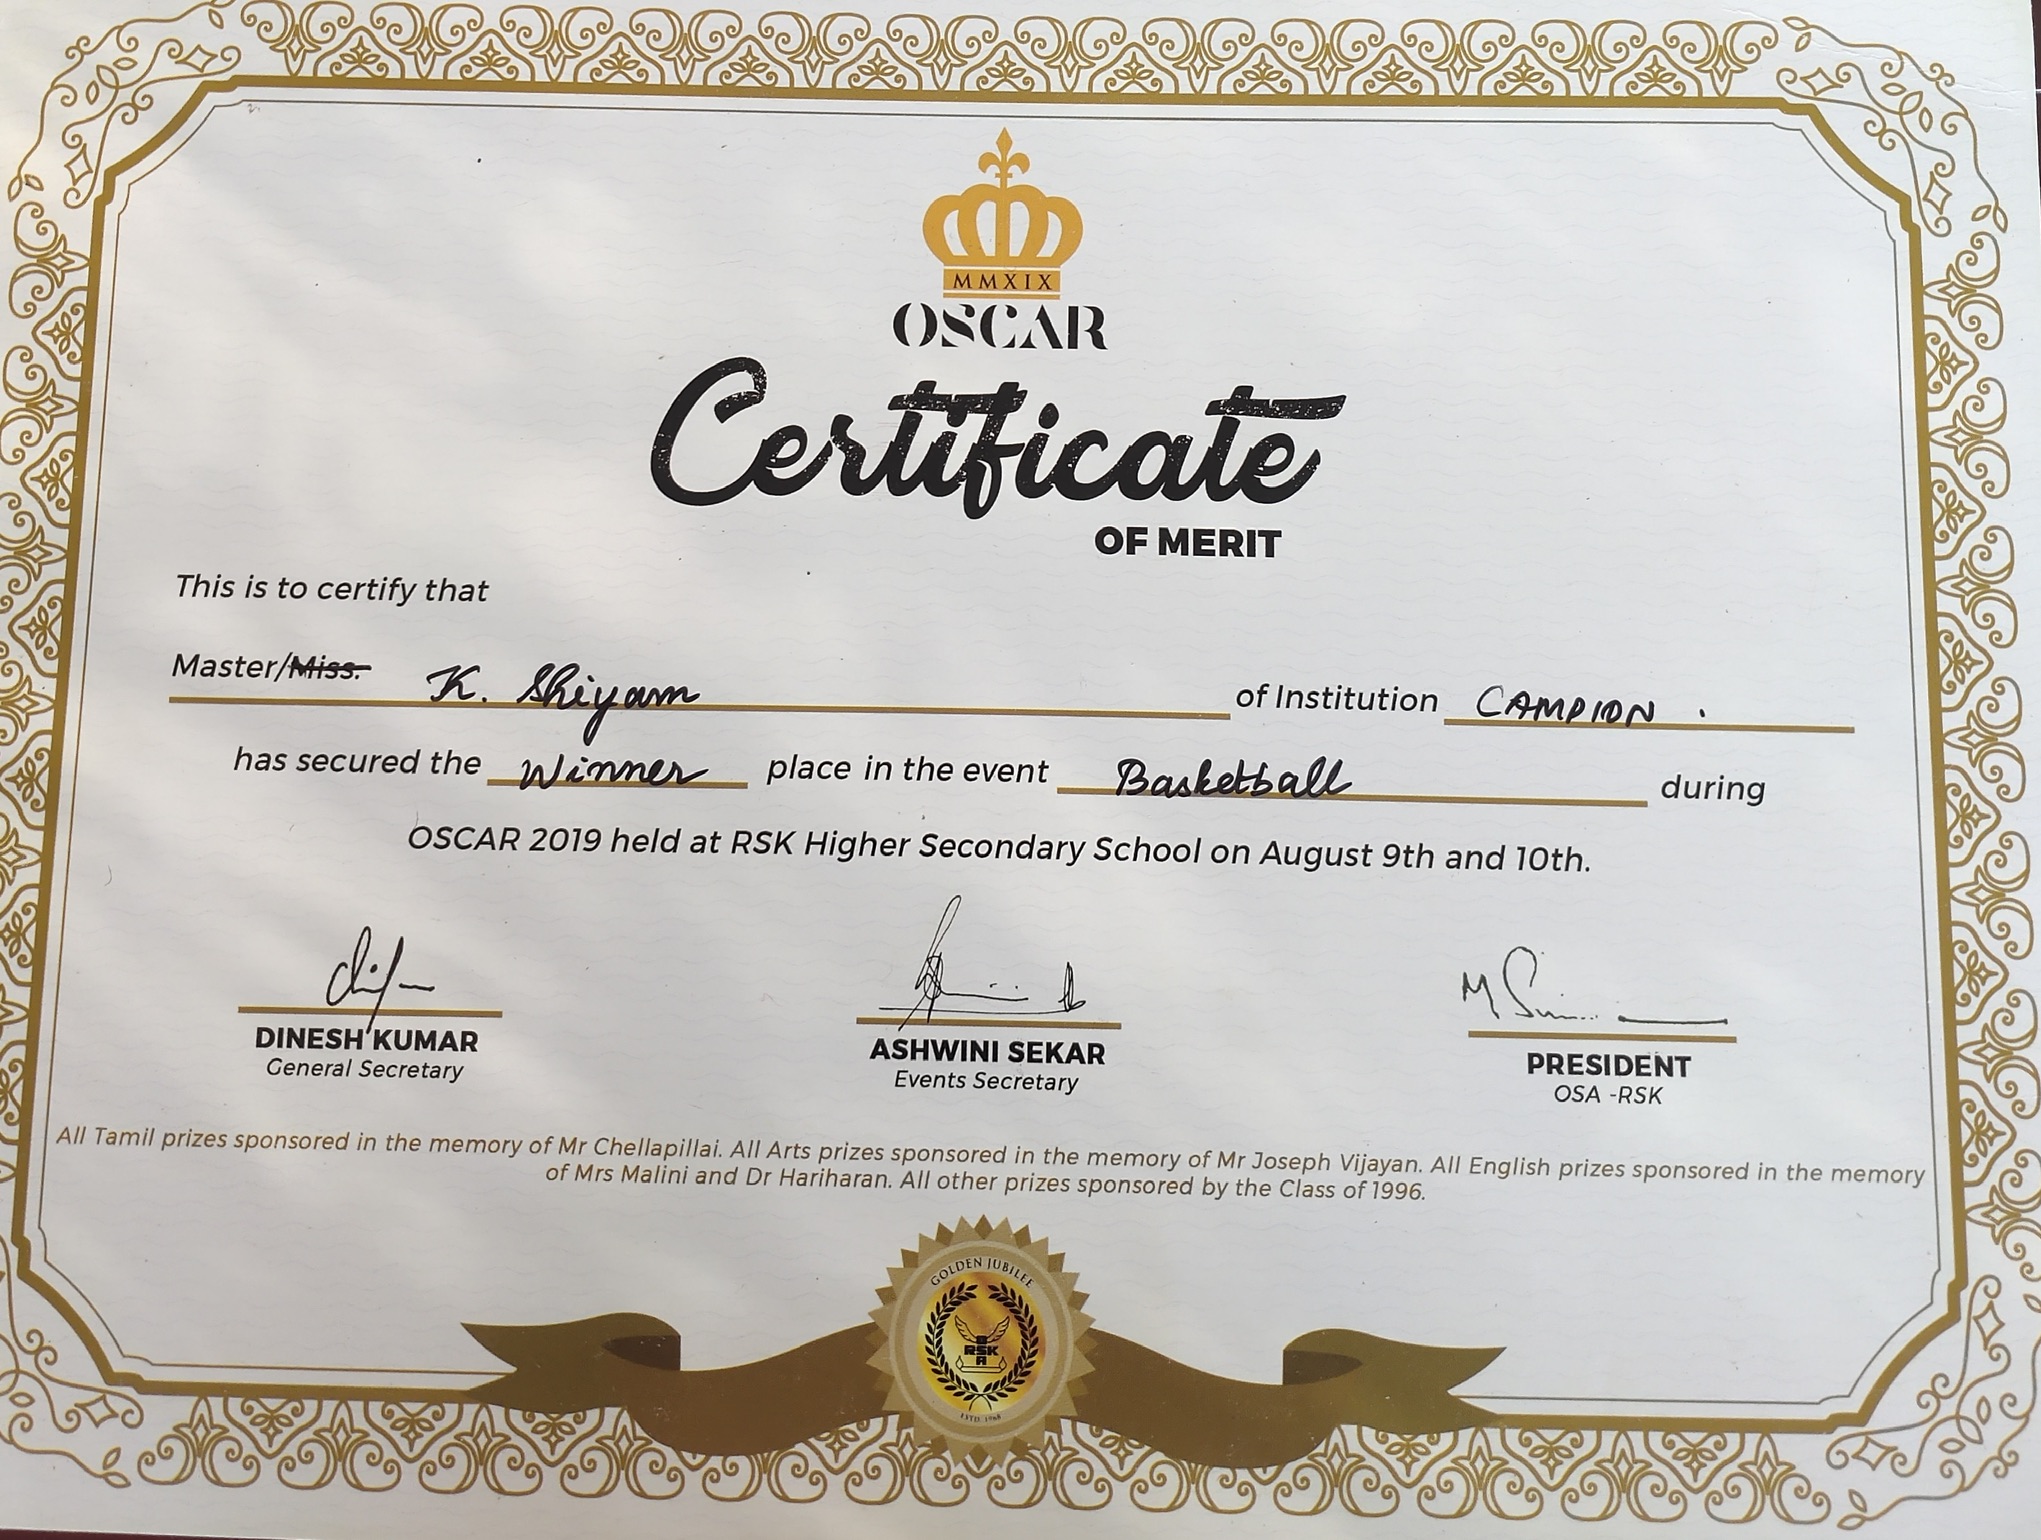 MMXIX
OSCAR
Certificate
OF MERIT
This is to certify that
Master/Miss. K. Shiyam of Institution CAMPION.
has secured the Winner place in the event Basketball during
OSCAR 2019 held at RSK Higher Secondary School on August 9th and 10th.
M
DINESH KUMAR ASHWINI SEKAR PRESIDENT
General Secretary Events Secretary OSA -RSK
All Tamil prizes sponsored in the memory of Mr Chellapillai. All Arts prizes sponsored in the memory of Mr Joseph Vijayan. All English prizes sponsored in the memory
of Mrs Malini and Dr Hariharan. All other prizes sponsored by the Class of 1996.
GOLDEN JUBILEE
RSK
ESTD. 1968